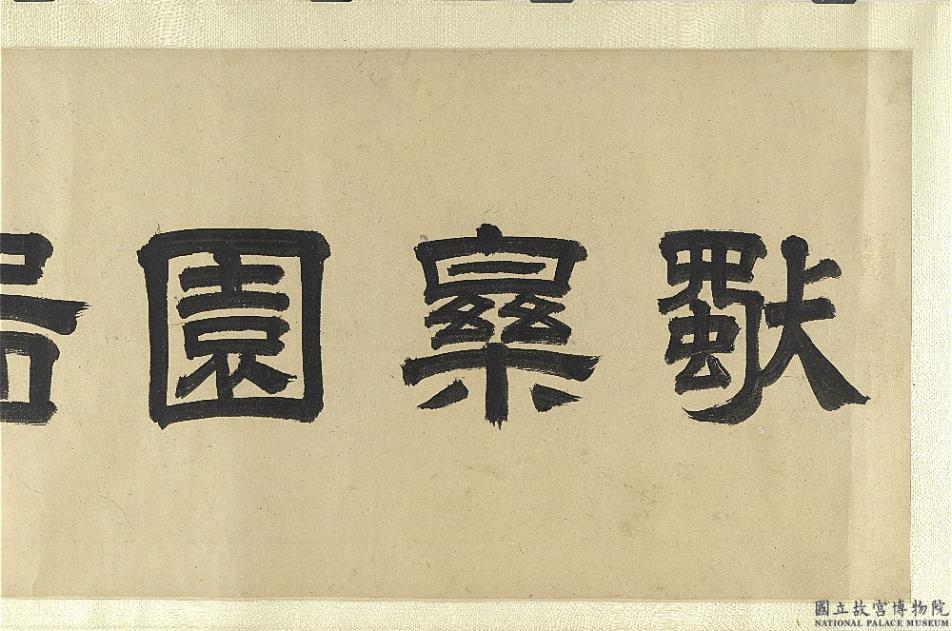 獨樂園
國立故宮博物院
NATIONAL PALACE MUSEUM